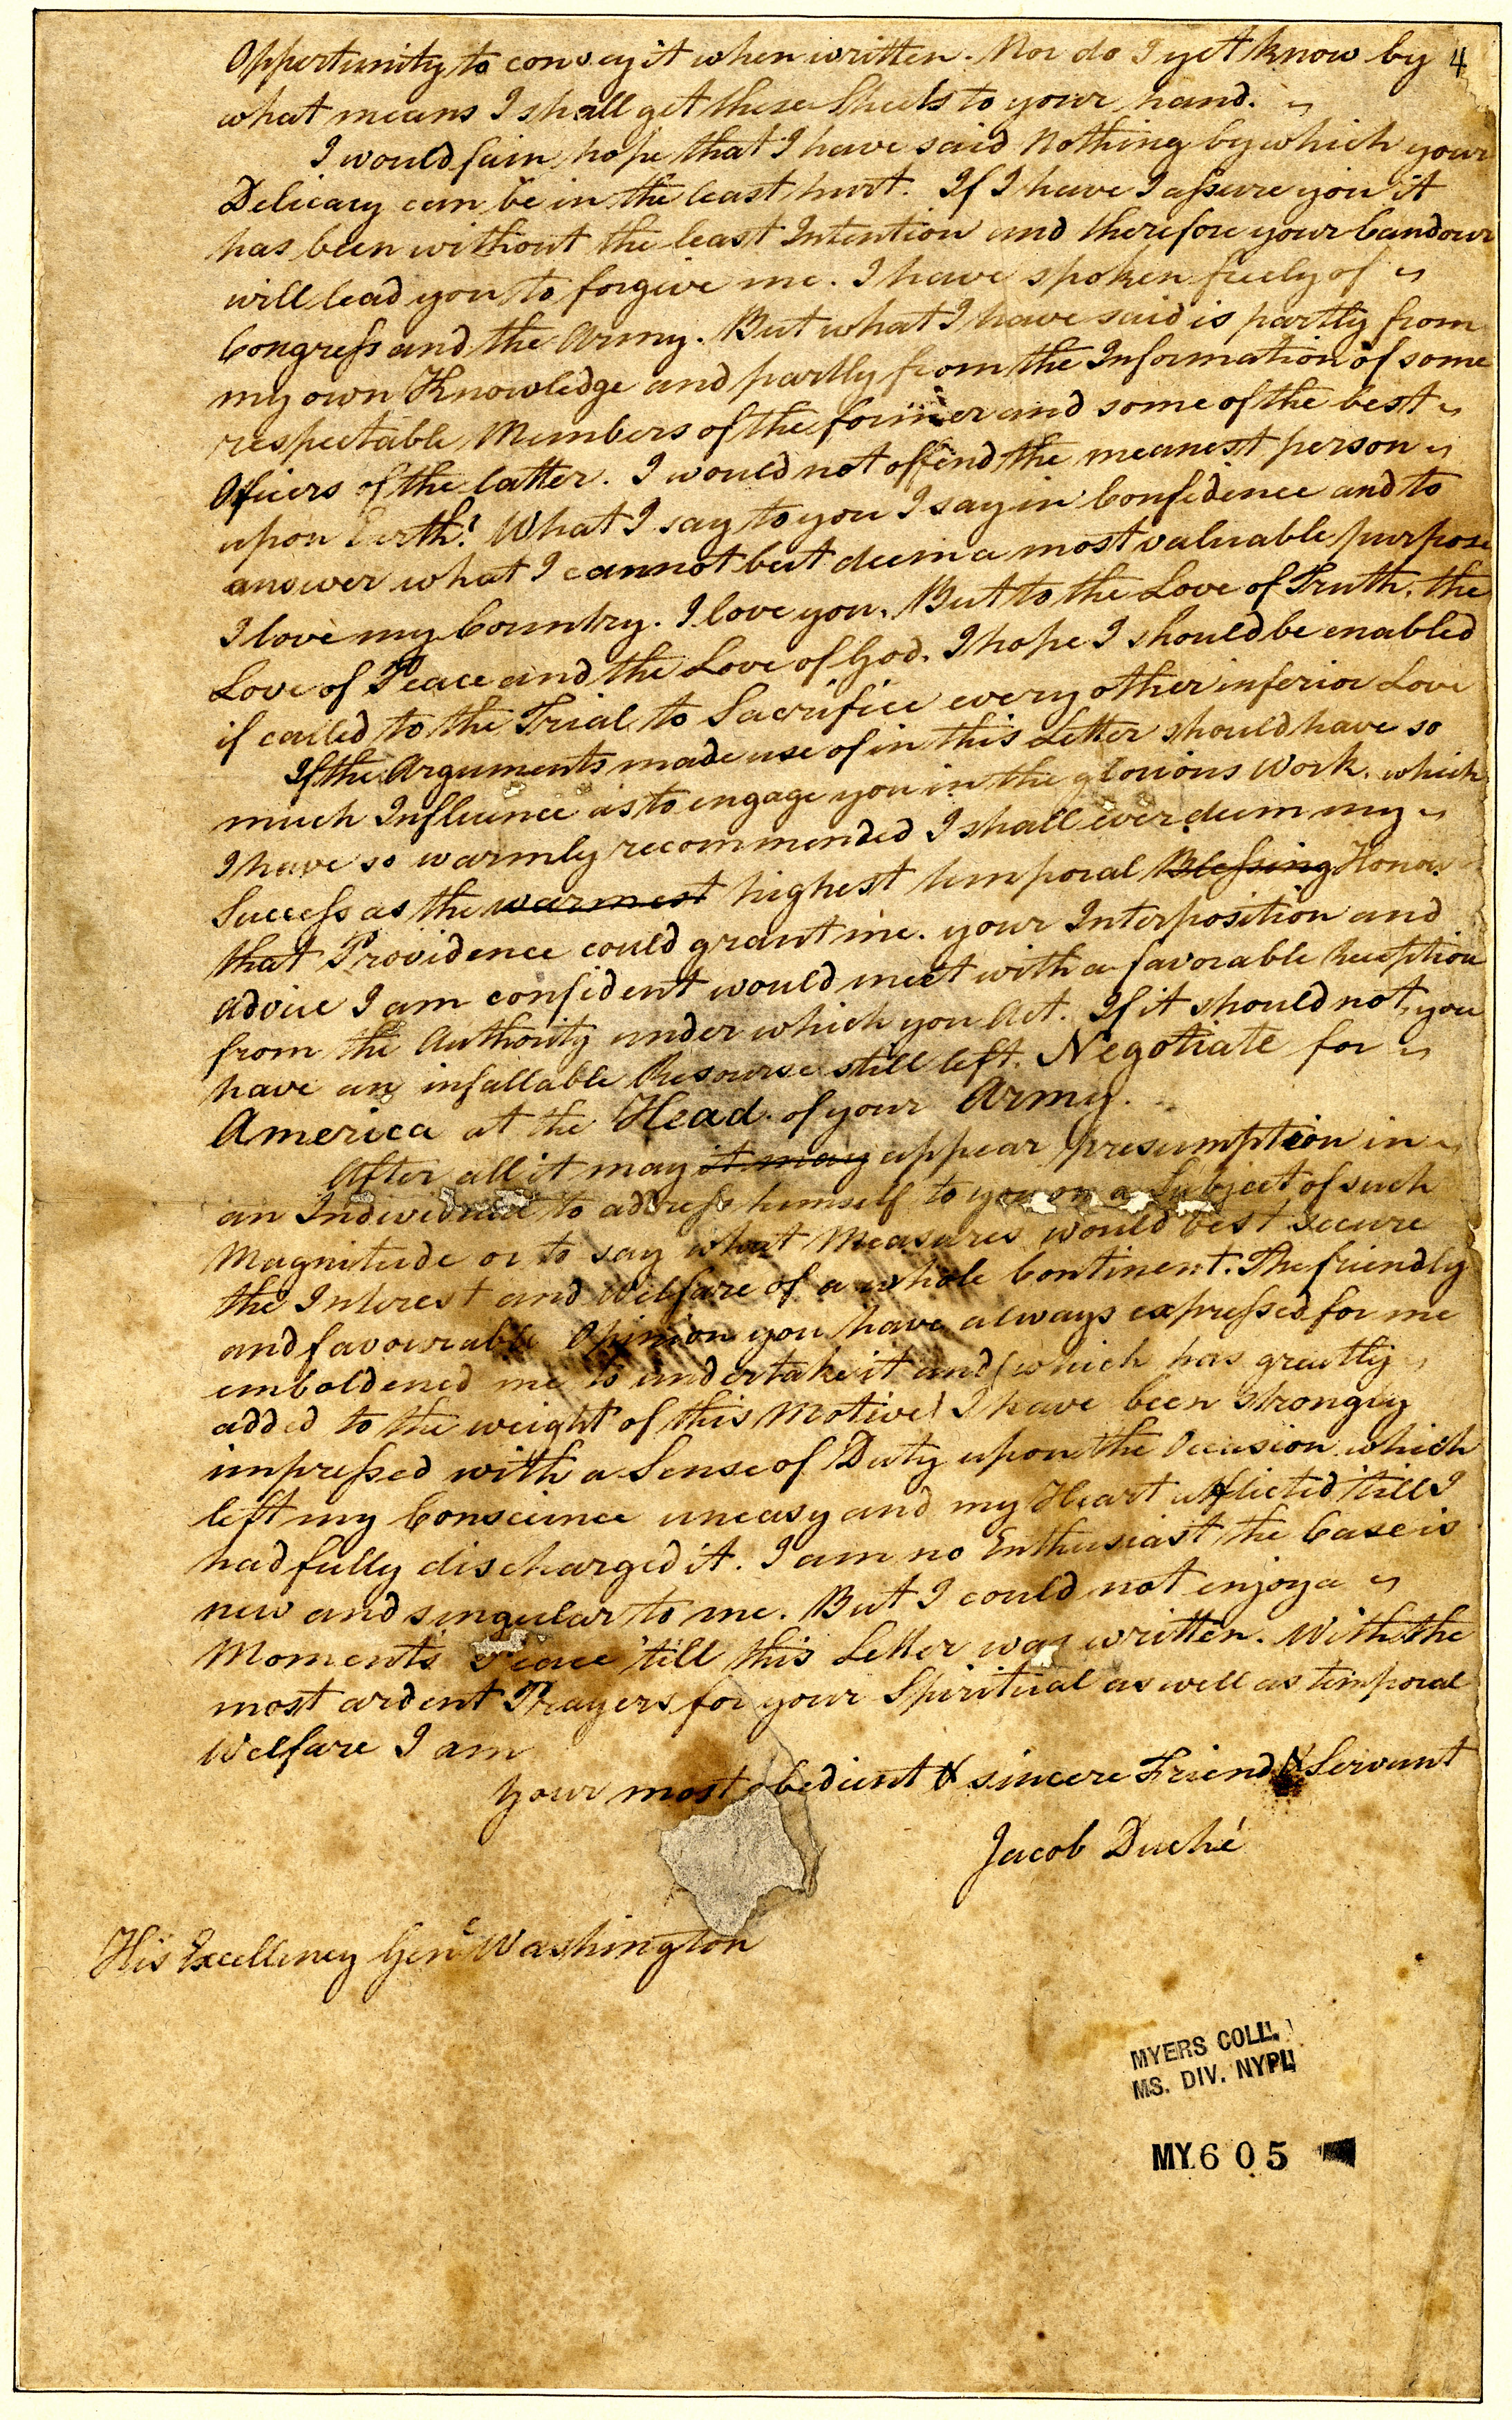 4
Opportunity to convey it when written. Nor do I yet know by
what means I shall get these Sheets to your hand.
I would fain hope that I have said Nothing by which your
Delicacy can be in the least hurt. If I have I assure you it
has been without the least Intention and therefore your Candour
will lead you to forgive me. I have spoken freely of
Congress and the Army. But what I have said is partly from
my own Knowledge and partly from the Information of some
respectable Members of the former and some of the best
Officers of the latter. I would not offend the meanest person
upon Earth! What I say to you I say in Confidence and to
answer what I cannot but deem a most valuable purpose
I love my Country. I love you. But to the Love of Truth, the
Love of Peace and the Love of God, I hope I should be enabled
if called to the Trial to Sacrifice every other inferior Love
If the Arguments made use of in this Letter should have so
much Influence as to engage you in the glorious Work, which
I have so warmly recommended I shall ever deem my
Success as the warmest highest temporal Blessing Honour
that Providence could grant me. your Interposition and
advice I am confident would meet with a favorable Reception
from the Authority under which you Act. If it should not, you
have an infallable Resourse still left. Negotiate for
America at the Head of your Army.
After all it may it may appear presumption in
an Individual to address himself to you on a Subject of such
Magnitude or to say what Measures would best secure
the Interest and Welfare of a whole Continent. The friendly
and favourable Opinion you have always expressed for me
emboldened me to undertake it and (which has greatly
added to the weight of this Motive) I have been strongly
impressed with a Sense of Duty upon the Occasion which
left my Conscience uneasy and my Heart afflicted till I
had fully discharged it. I am no Enthusiast, the Case is
new and singular to me. But I could not enjoy a
Moments Peace 'till this Letter was written. With the
most ardent Prayers for your Spiritual as well as temporal
Welfare I am
Your most obedient & sincere Friend & Servant
Jacob Duché
His Excellency Genl Washington
MYERS COLL.
MS. DIV. NYPL
MY.605